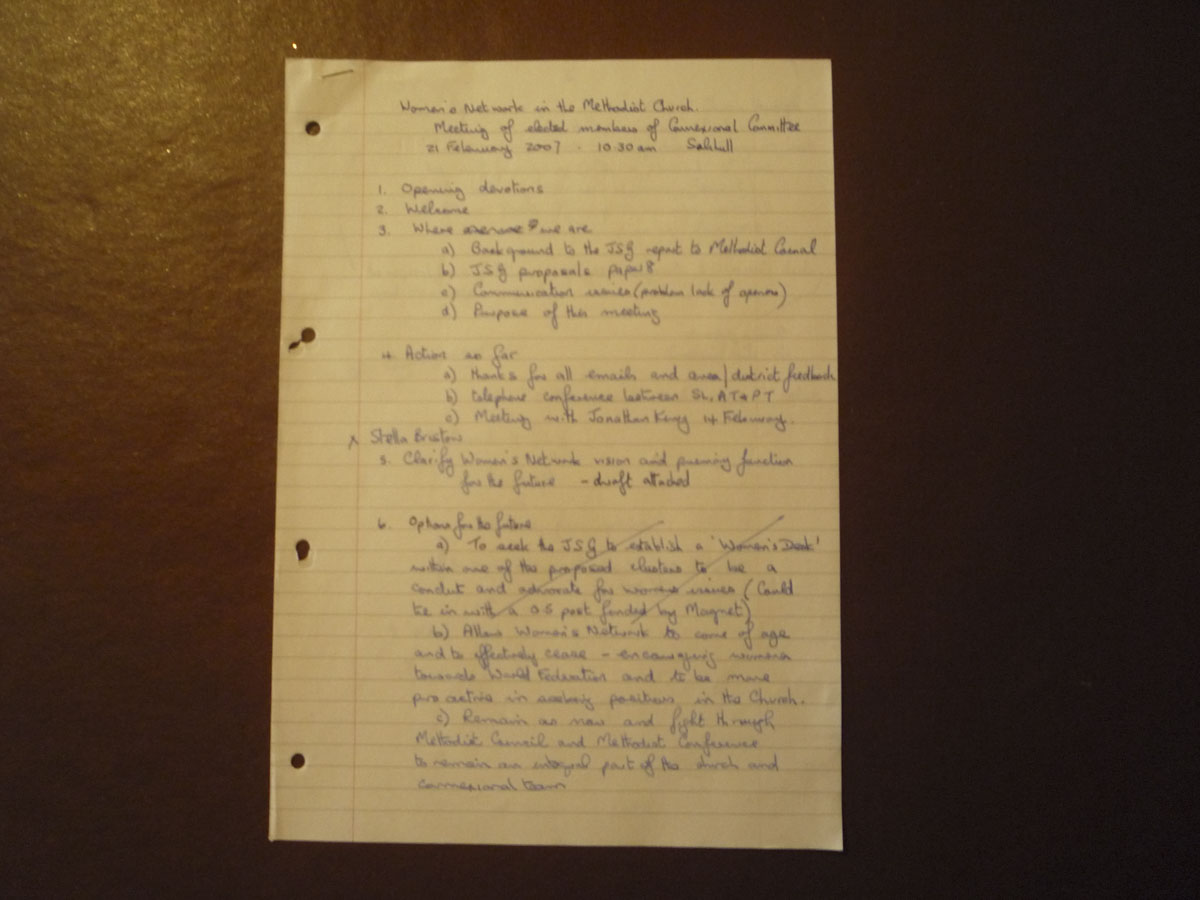 Women's Network in the Methodist Church.
Meeting of elected members of Connexional Committee
21 February 2007 . 10.30am Solihull
1. Opening devotions
2. Welcome
3. Where we are
a) Background to the JSG report to Methodist Council
b) JSG proposals paper 8
c) Communication issues (problem lack of openness)
d) Purpose of this meeting
4. Action so far
a) thanks for all emails and area/district feedback
b) telephone conference between SL, AT & PT
c) Meeting with Jonathan Kerry 14 February.
x Stella Bristow
5. Clarify Women's Network vision and function
for the future - draft attached
6. Options for the future
a) To seek the JSG to establish a 'Women's Desk'
within one of the proposed clusters to be a
conduit and advocate for womens issues (Could
tie in with a 0.5 post funded by Magnet)
b) Allow Women's Network to come of age
and to effectively cease - encouraging women
towards World Federation and to be more
pro active in seeking positions in the Church.
c) Remain as now and fight through
Methodist Council and Methodist Conference
to remain an integral part of the church and
connexional team